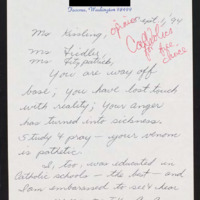 Tacoma, Washington 98999
Sept. 1, '94
Mr. Kissling,
opinion
Catholics
for
free
choice
Ms. Fiedler,
Ms. Fitzpatrick,
You are way off
base; you have lost touch
with reality; Your anger
has turned into sickness.
Study & pray - your venom
is pathetic.
I, too, was educated in
Catholic schools - the best - and
I am embarrassed to see & hear